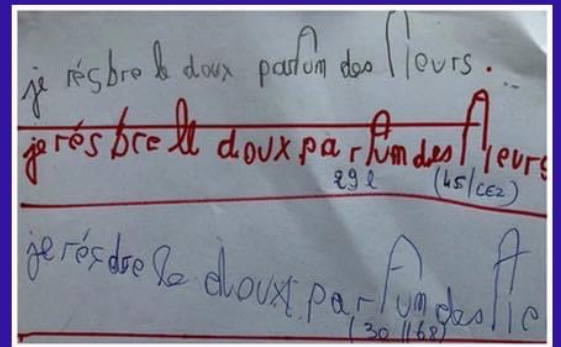 je résbre le doux parfum des fleurs.
je résbre le doux parfum des fleurs
29 l (45/CE2)
je résdre le doux parfum des fle
(30 //68)